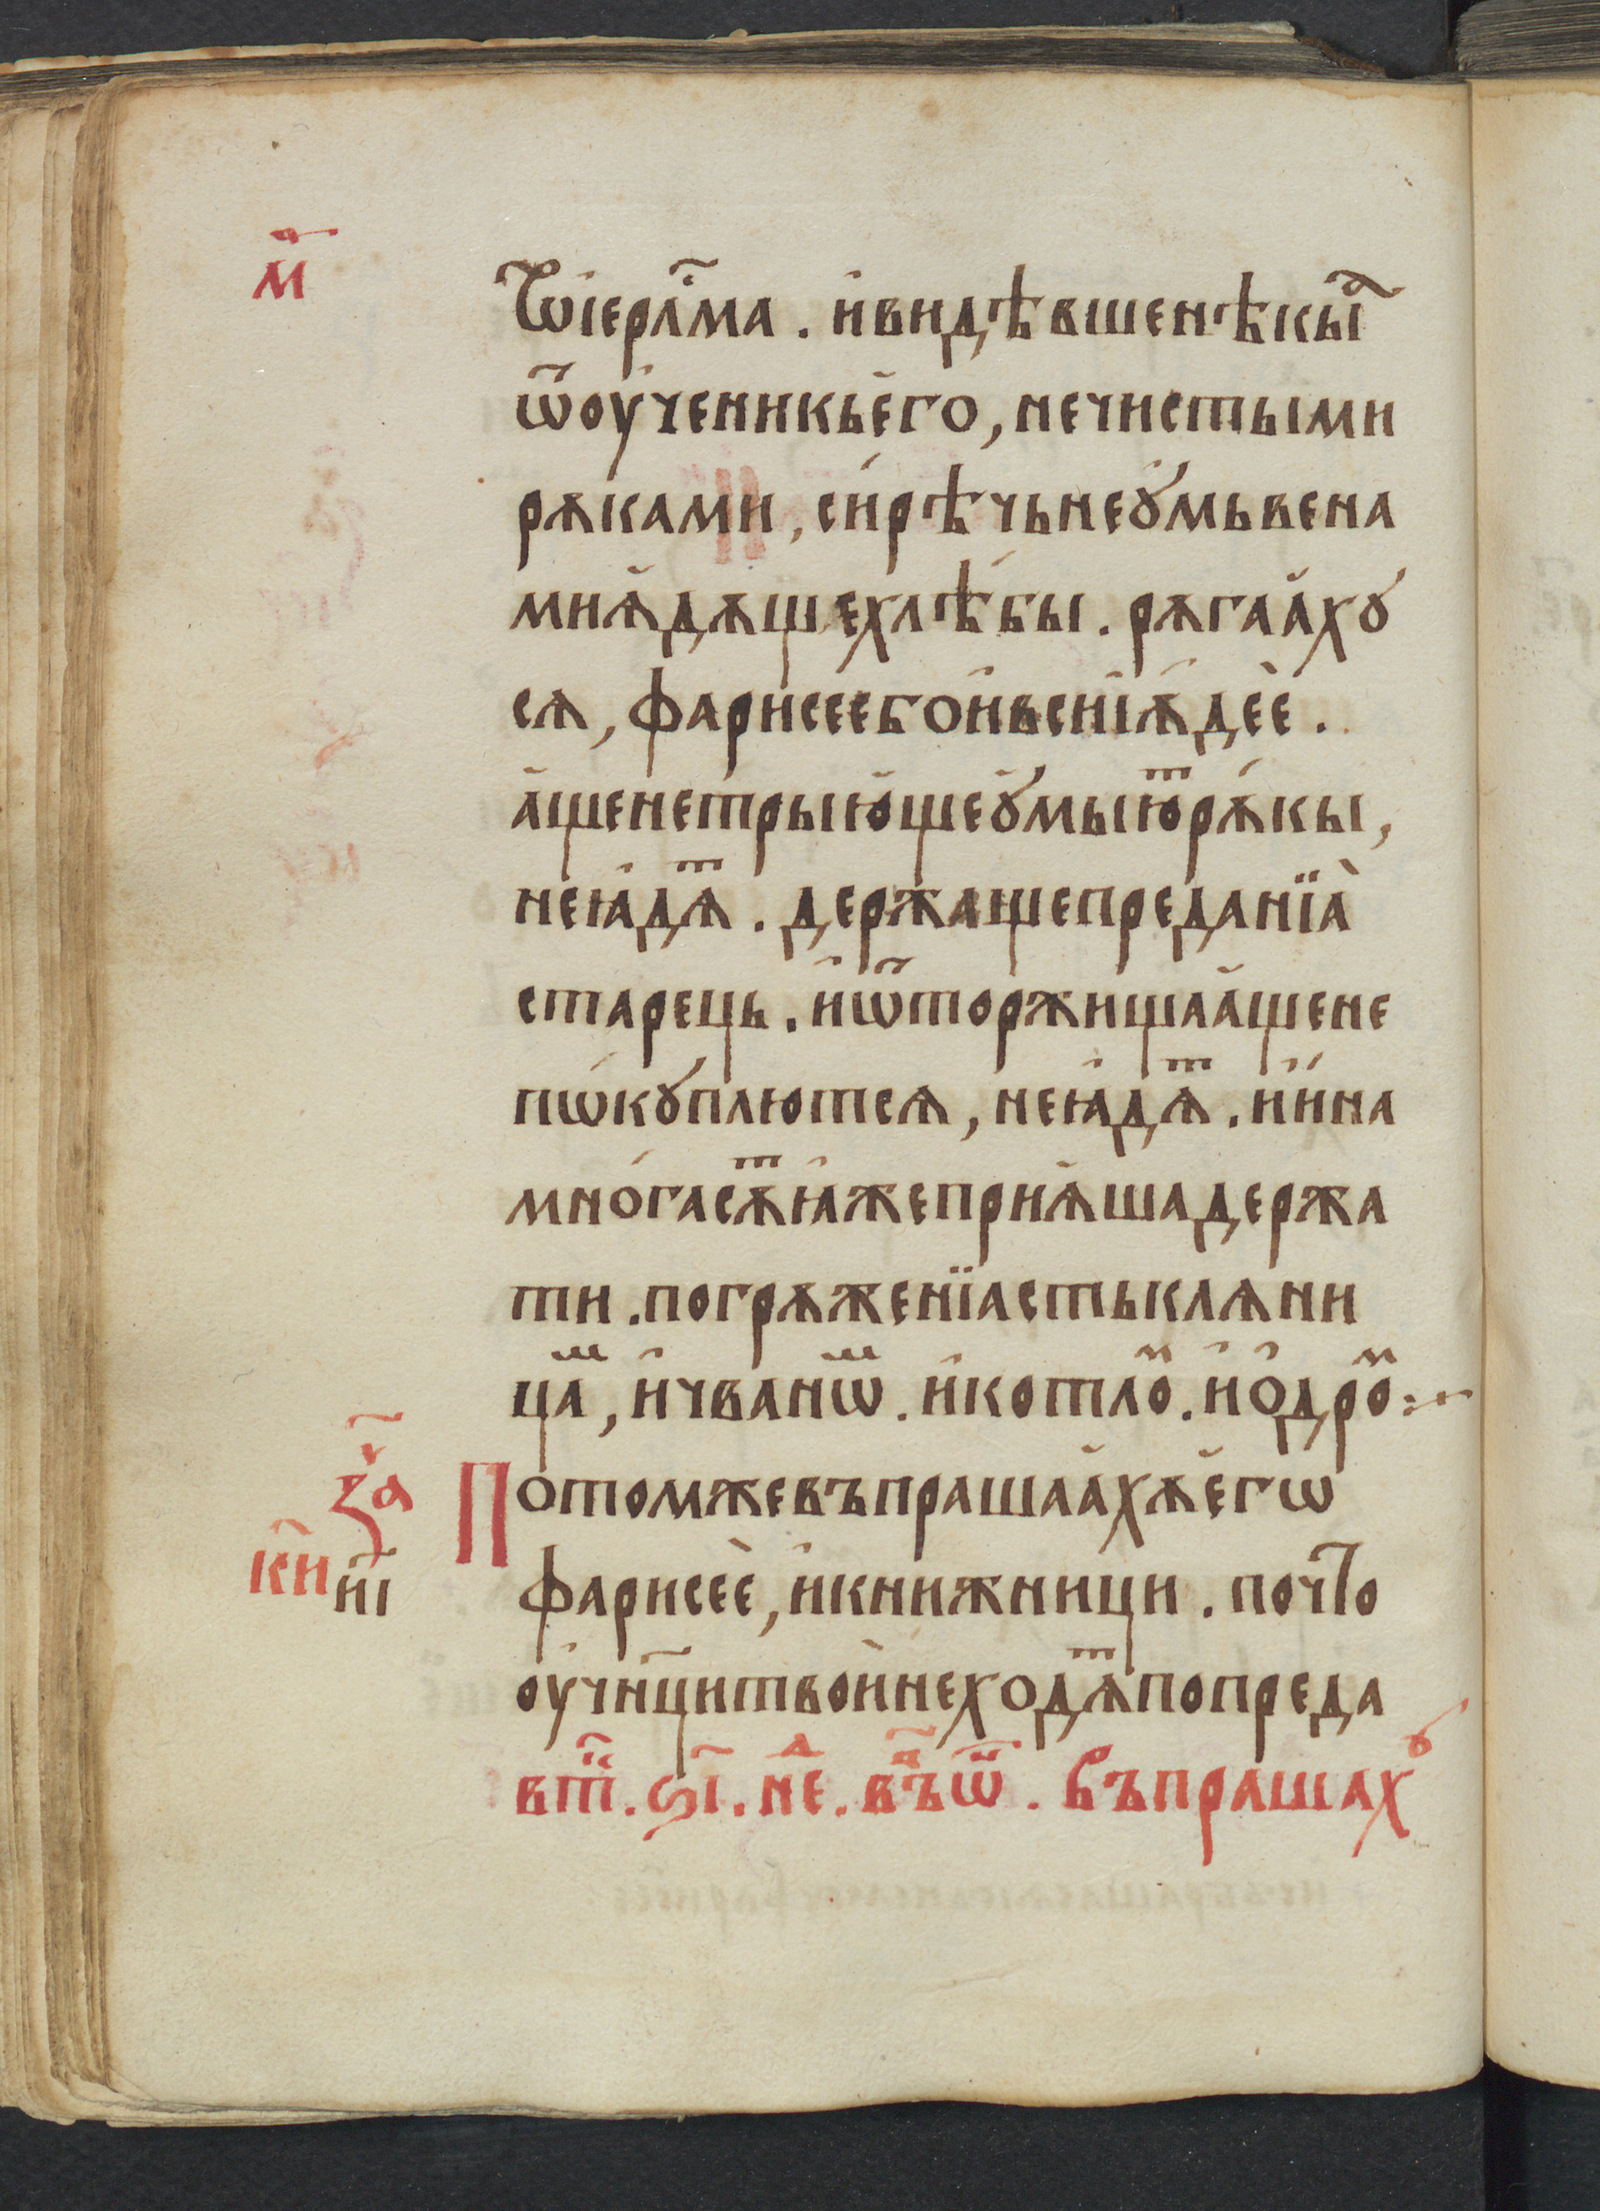 м҃а
ѿіерⷭ҇лма . и҆видѣвшенѣкыⷯ҇
ѿоу҆ченикье҆го , нечистыми
рѫками , си́рѣчьнеꙋмьвена
миꙗ҆дѧщехлѣбы . рѫгаа҆хꙋ
сѧ , фарисеебои҆всиі҆ꙋ҆деѐ .
а҆щенетрыю҆щеꙋ҆мыюⷮрѫкы ,
неꙗ҆дѧⷮ . держащепреданїа̀
старець . и҆ѿторжищаа҆щене
пѡкꙋплютсѧ , неꙗ҆дѧⷮ . и҆и҆на
мно́гасѫⷮꙗ҆жеприꙗ҆шадержа
ти . погрѫженїастькляни
цаⷨ , и҆чванѡⷨ . и҆котлоⷨ . и҆ѻ҆дроⷨ :~
за҃
Потомжевъпрашаа҆хѫе҆гѡ
к҃и н҃і
фарисеѐ , и҆книжници . почто
оу҆чн҃цитвои҆неходѧⷮпопреда
вт҃к . ѕ҃і . не҃ⷣ . въ҃ѿ . Въпрашахꙋ